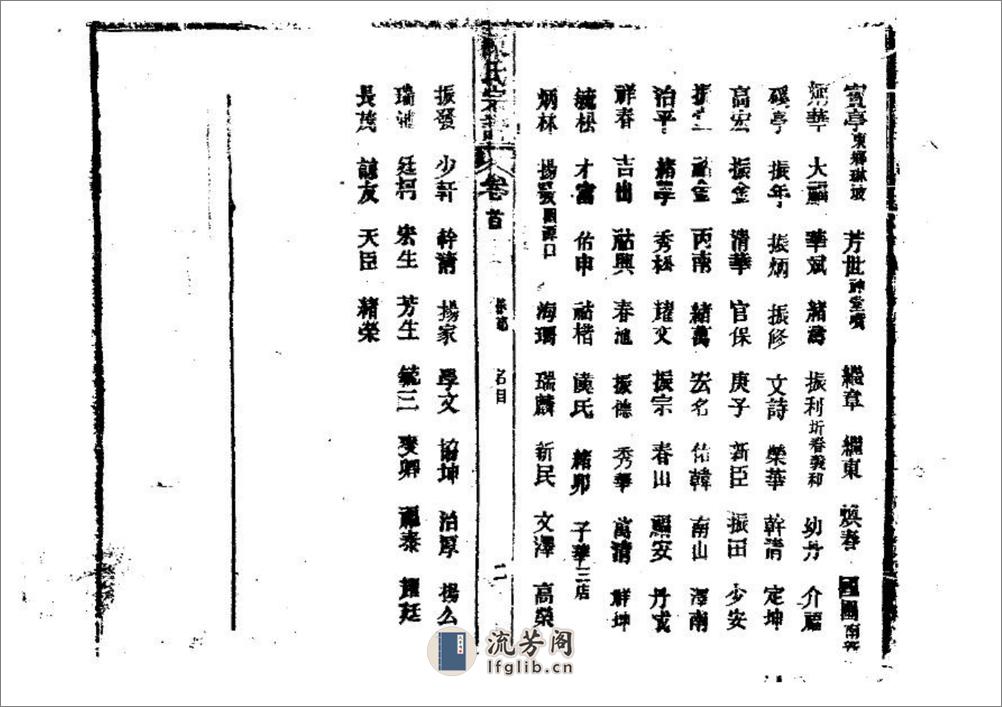 寶亭東鄉琳坡 芳世神堂嘴 繼章 繼東 煥春 國團
華 大福 華斌 緒嵩 振利圻春義和 幼丹 介福
磎亭 振年 振炳 振修 文詩 榮華 幹清 定坤
高宏 振金 清華 官保 庚子 新臣 振田 少安
振 祐金 丙南 緒萬 宏名 佑韓 南山 澤南
治平 緒亭 秀松 耀文 振宗 春山 福安 丹成
祥春 吉山 祜興 春旭 振德 秀華 萬清 祥坤
毓松 才富 佑申 祜楷 漢氏 緒卯 子華三店
炳林 揚 口 海珊 瑞麟 新民 文澤 高榮
陳氏宗譜 卷首 名目 二
振發 少軒 幹清 揚家 學文 協坤 治厚 楊么
瑞 廷柯 宏生 芳生 毓三 麥卿 福泰 耀廷
長茂 諒友 天臣 緒榮
流芳阁
lfglib.cn